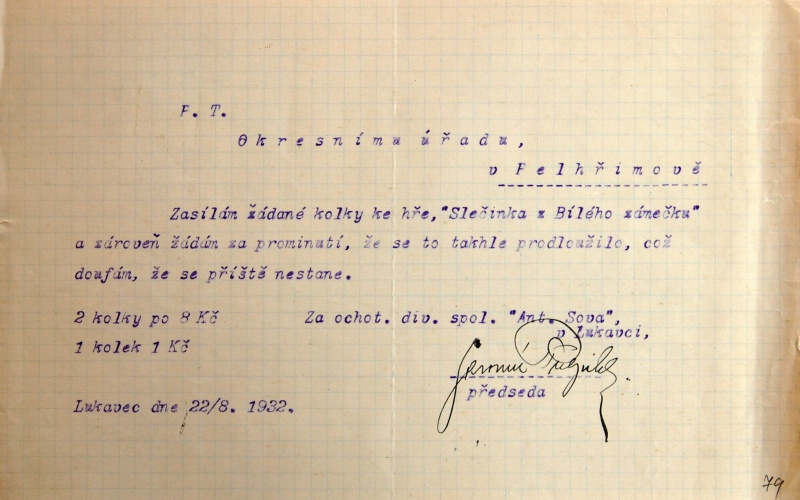 P. T.
Okresnímu úřadu,
v Pelhřimově
Zasílám žádané kolky ke hře, "Slečinka z Bílého zámečku"
a zároveň žádám za prominutí, že se to takhle prodloužilo, což
doufám, že se příště nestane.
2 kolky po 8 Kč
Za ochot. div. spol. "Ant. Sova",
v Lukavci,
1 kolek 1 Kč
předseda
Lukavec dne 22/8. 1932.
79